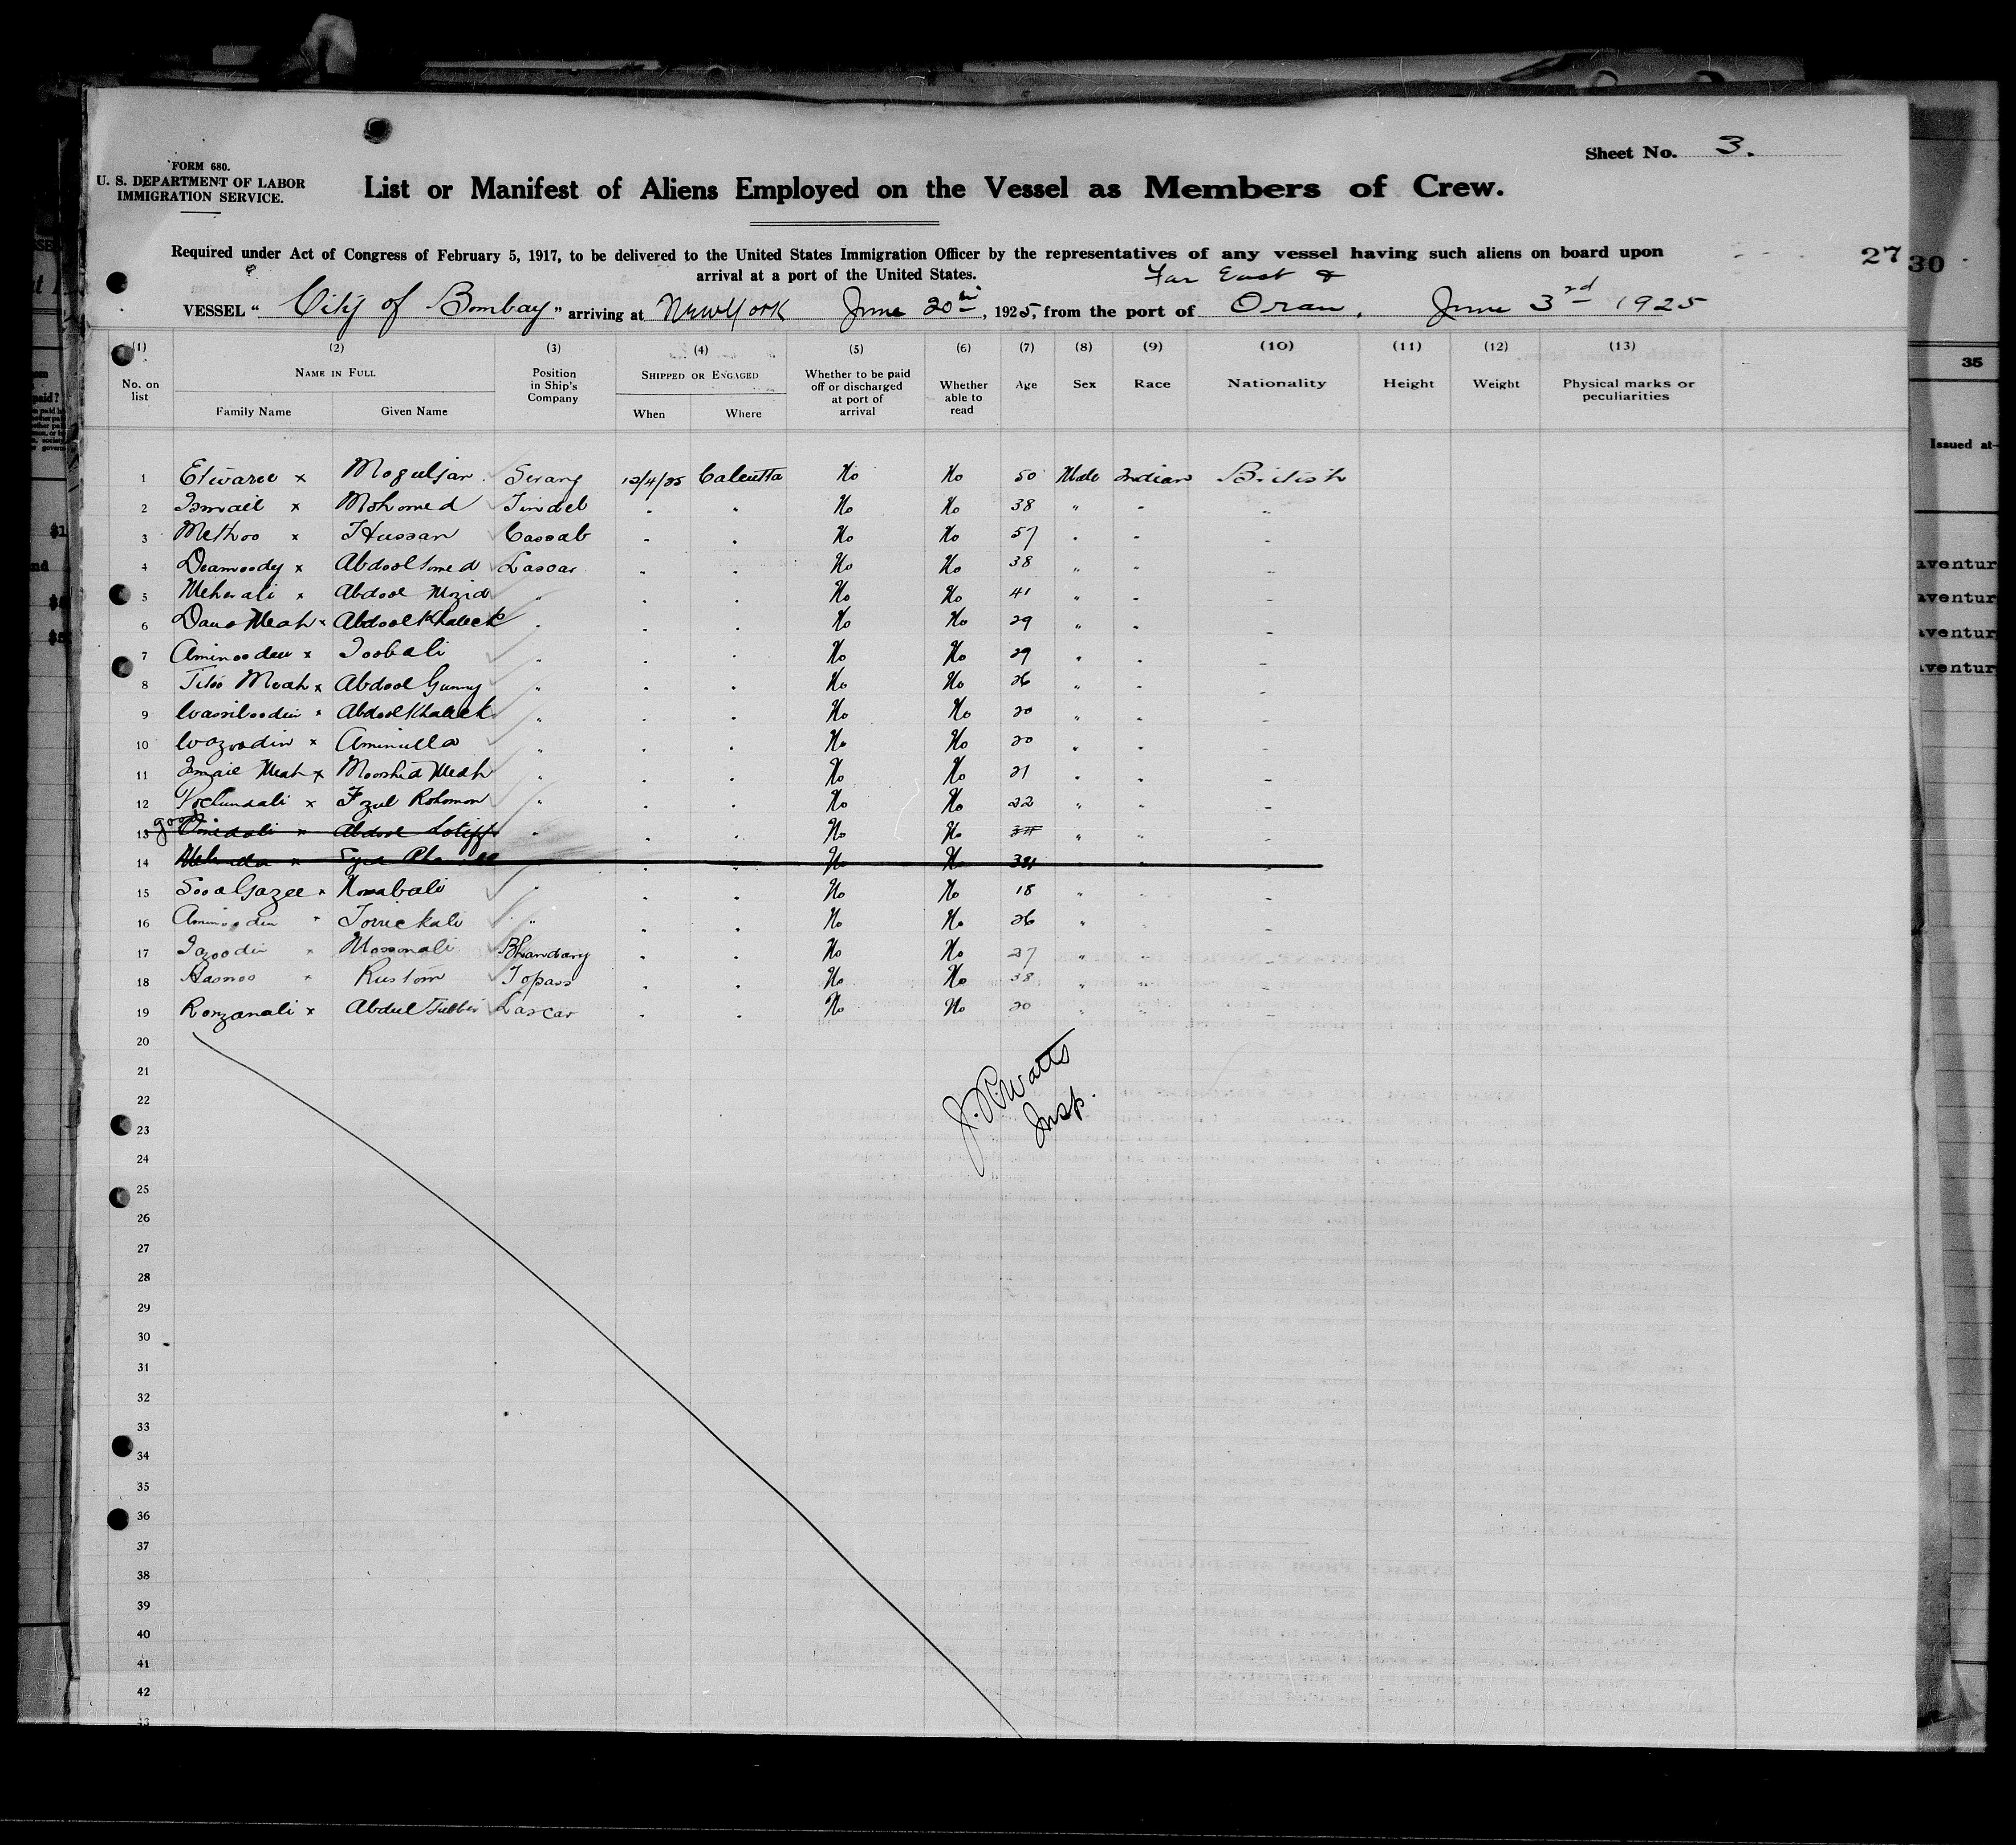 Sheet No. 3.
FORM 680.
U. S. DEPARTMENT OF LABOR
IMMIGRATION SERVICE.
List or Manifest of Aliens Employed on the Vessel as Members of Crew.
Required under Act of Congress of February 5, 1917, to be delivered to the United States Immigration Officer by the representatives of any vessel having such aliens on board upon
arrival at a port of the United States.
27 30
Far East &
VESSEL " City of Bombay " arriving at New York June 20th, 1925, from the port of Oran, June 3rd 1925
(1) (2) (3) (4) (5) (6) (7) (8) (9) (10) (11) (12) (13)
No. on list NAME IN FULL Family Name Given Name Position in Ship's Company SHIPPED OR ENGAGED When Where Whether to be paid off or discharged at port of arrival Whether able to read Age Sex Race Nationality Height Weight Physical marks or peculiarities
35
Issued at
1 Etwaree x Moguljan Serang 12/4/25 Calcutta No No 50 Male Indian British
2 Ismail x Mohomed Tindel " " No No 38 " " "
3 Methoo x Hussan Cassab " " No No 57 " " "
4 Deamoody x Abdool Somed Lascar " " No No 38 " " "
5 Meherali x Abdool Mozid " " " No No 41 " " "
6 Dana Meah x Abdool Khaleck " " " No No 29 " " "
7 Aminooden x Toobali " " " No No 29 " " "
8 Titoo Meah x Abdool Gunny " " " No No 26 " " "
9 Wassiloodin x Abdool Khaleek " " " No No 20 " " "
10 Wazoodin x Aminulla " " " No No 20 " " "
11 Ismail Meah x Moorshid Meah " " " No No 21 " " "
12 x Fozul Rohomon " " " No No 22 " " "
good
13 Omedali x Abdool Lotiff " " " No No " "
14 x Syed " " No No " "
15 Sooa Gazee x Komabali " " " No No 18 " " "
16 Aminoodin " Torrickali " " " No No 26 " " "
17 Tazoodin x Mosonali Bhandary " " No No 27 " " "
18 Hasnoo x Rustom Topass " " No No 38 " " "
19 Ronzanali x Abdul Jubber Lascar " " No No 20 " " "
20
21
22
23
24
25
26
27
28
29
30
31
32
33
34
35
36
37
38
39
40
41
42
43
J. R. Watts
Insp.